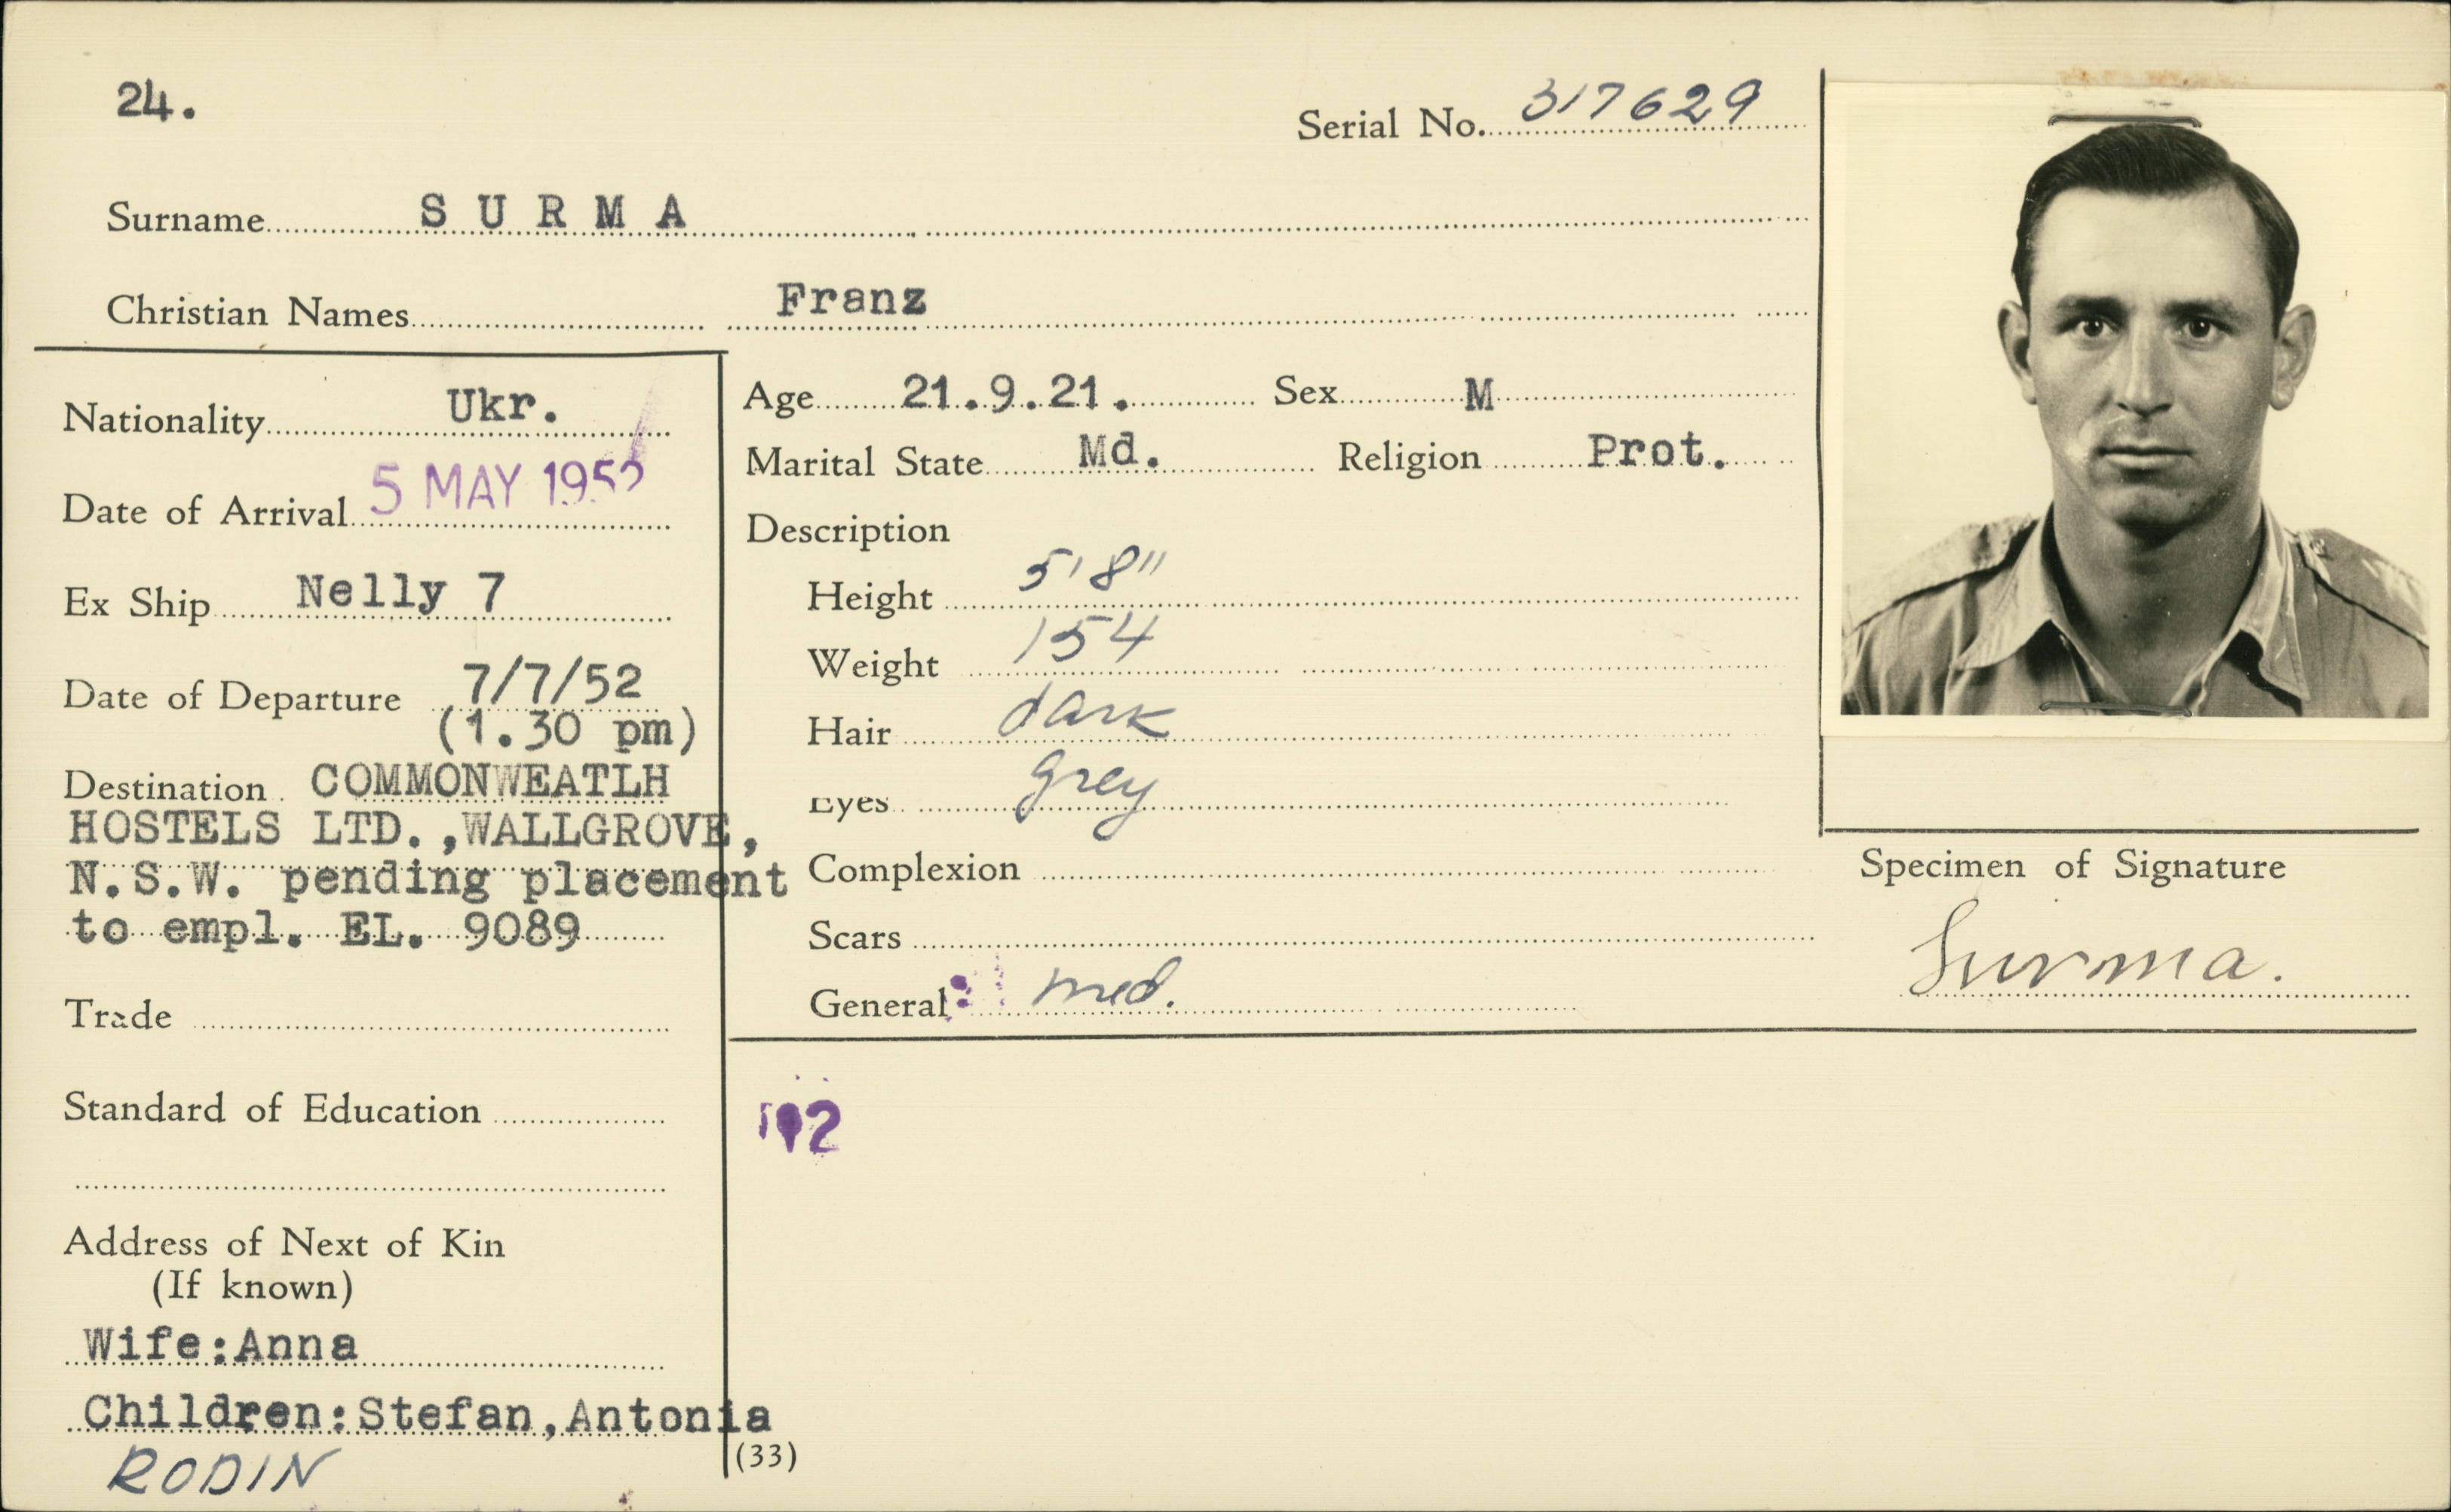 24.
Serial No. 317629
Surname S U R M A
Christian Names Franz
Nationality Ukr.
Date of Arrival 5 MAY 1952
Ex Ship Nelly 7
Date of Departure 7/7/52
(1.30 pm)
Destination COMMONWEATLH
HOSTELS LTD.,WALLGROVE,
N.S.W. pending placement
to empl. EL. 9089
Trade
Standard of Education
Address of Next of Kin
(If known)
Wife:Anna
Children:Stefan,Antonia
RODIN
Age 21.9.21. Sex M
Marital State Md. Religion Prot.
Description
Height 5'8"
Weight 154
Hair dark
Eyes grey
Complexion
Scars
General med.
(33)
Specimen of Signature
Surma.